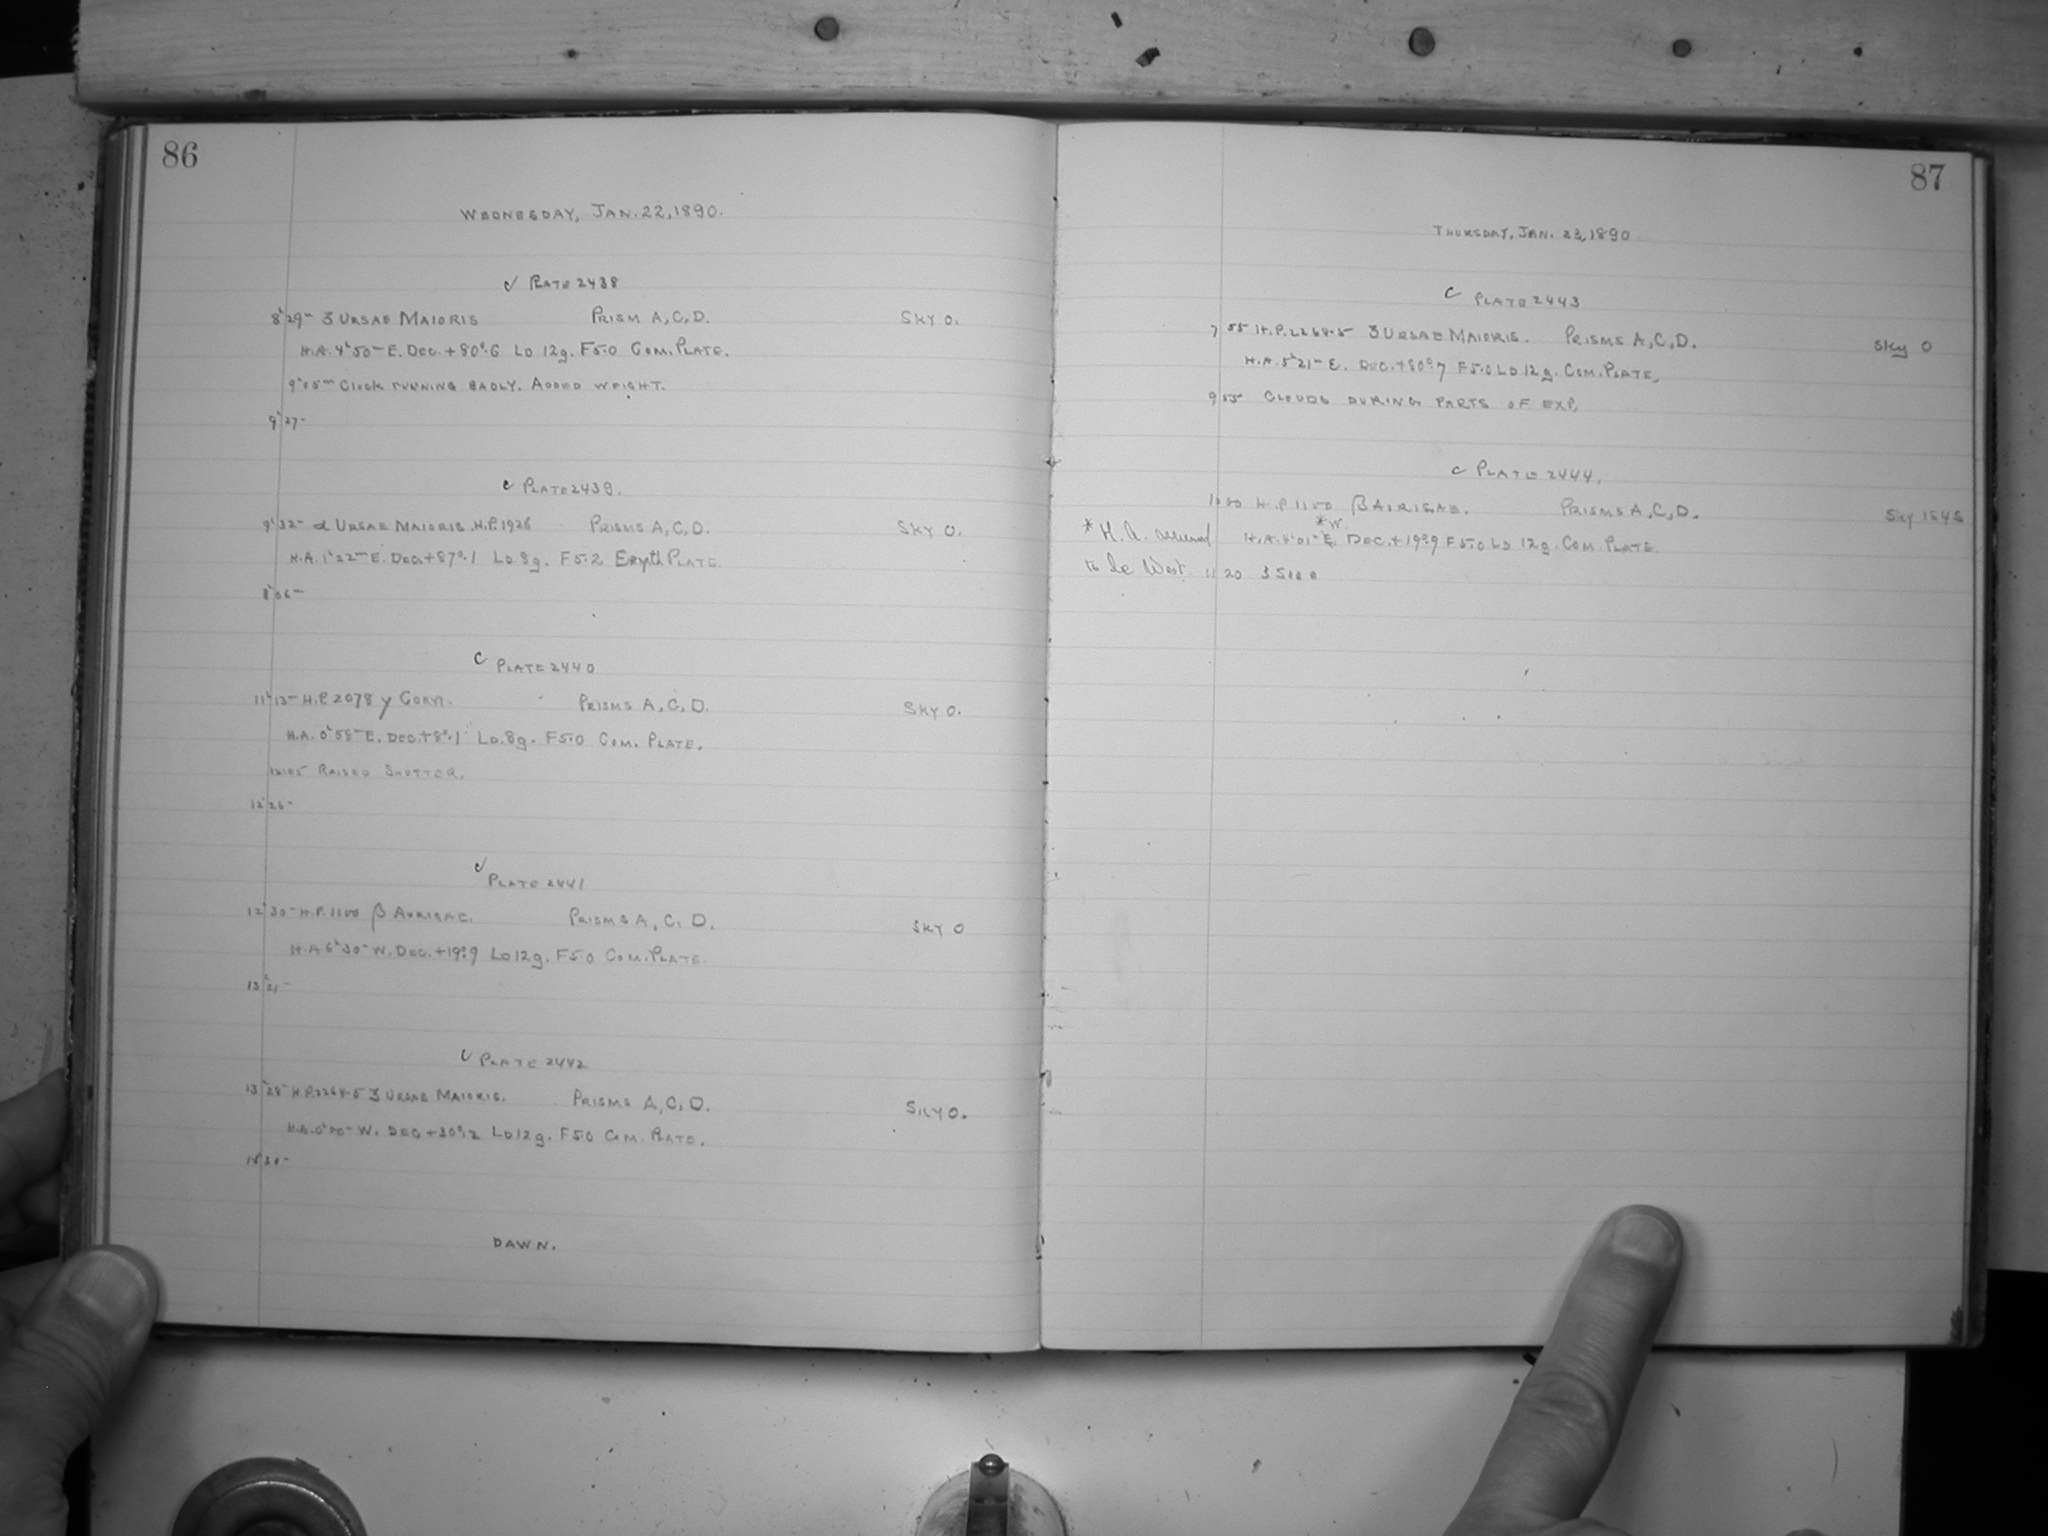 86
WEDNESDAY, JAN. 22, 1890.
C PLATE 2438
8h 29m ζ URSAE MAIORIS PRISM A, C, D. SKY 0.
H.A. 4h 50m E. DEC. +80°.6 LD 12g. F5.0 COM. PLATE.
9h 05m CLOCK RUNNING BADLY. ADDED WEIGHT.
9h 27m
C PLATE 2439.
9h 32m α URSAE MAIORIS. H.P. 1926 PRISMS A, C, D. SKY 0.
H.A. 1h 22m E. DEC. +87°.1 LD. 8g. F5.2 ERYTH PLATE.
06m
C PLATE 2440
11h 13m H.P. 2078 γ CORVI. PRISMS A, C, D. SKY 0.
H.A. 0h 58m E. DEC. +8°.1 LD. 8g. F5.0 COM. PLATE.
12h 05 RAISED SHUTTER.
12h 26m
C PLATE 2441
12h 30m H.P. 1100 β AURIGAE. PRISMS A, C, D. SKY 0
H.A. 6h 30m W. DEC. +19°.9 LD 12g. F5.0 COM. PLATE.
13h 21m
C PLATE 2442
13h 28m H.P. 2264-5 ζ URSAE MAIORIS. PRISMS A, C, D. SKY 0.
H.A. 0h 00m W. DEC. +30°.2 LD 12g. F5.0 COM. PLATE.
DAWN.
87
THURSDAY, JAN. 23, 1890
C PLATE 2443
7 55 H.P. 2264-5 ζ URSAE MAIORIS. PRISMS A, C, D. Sky 0
H.A. 5h 21m E. DEC. +80°.7 F5.0 LD 12g. COM. PLATE.
9 55 CLOUDS DURING PARTS OF EXP.
C PLATE 2444.
10 00 H.P. 1100 β AURIGAE. PRISMS A, C, D. Sky
*W
* H.A. assumed H.A. 4h 01m E. DEC. +19°.9 F5.0 LD 12g. COM. PLATE.
to be West. 11 20